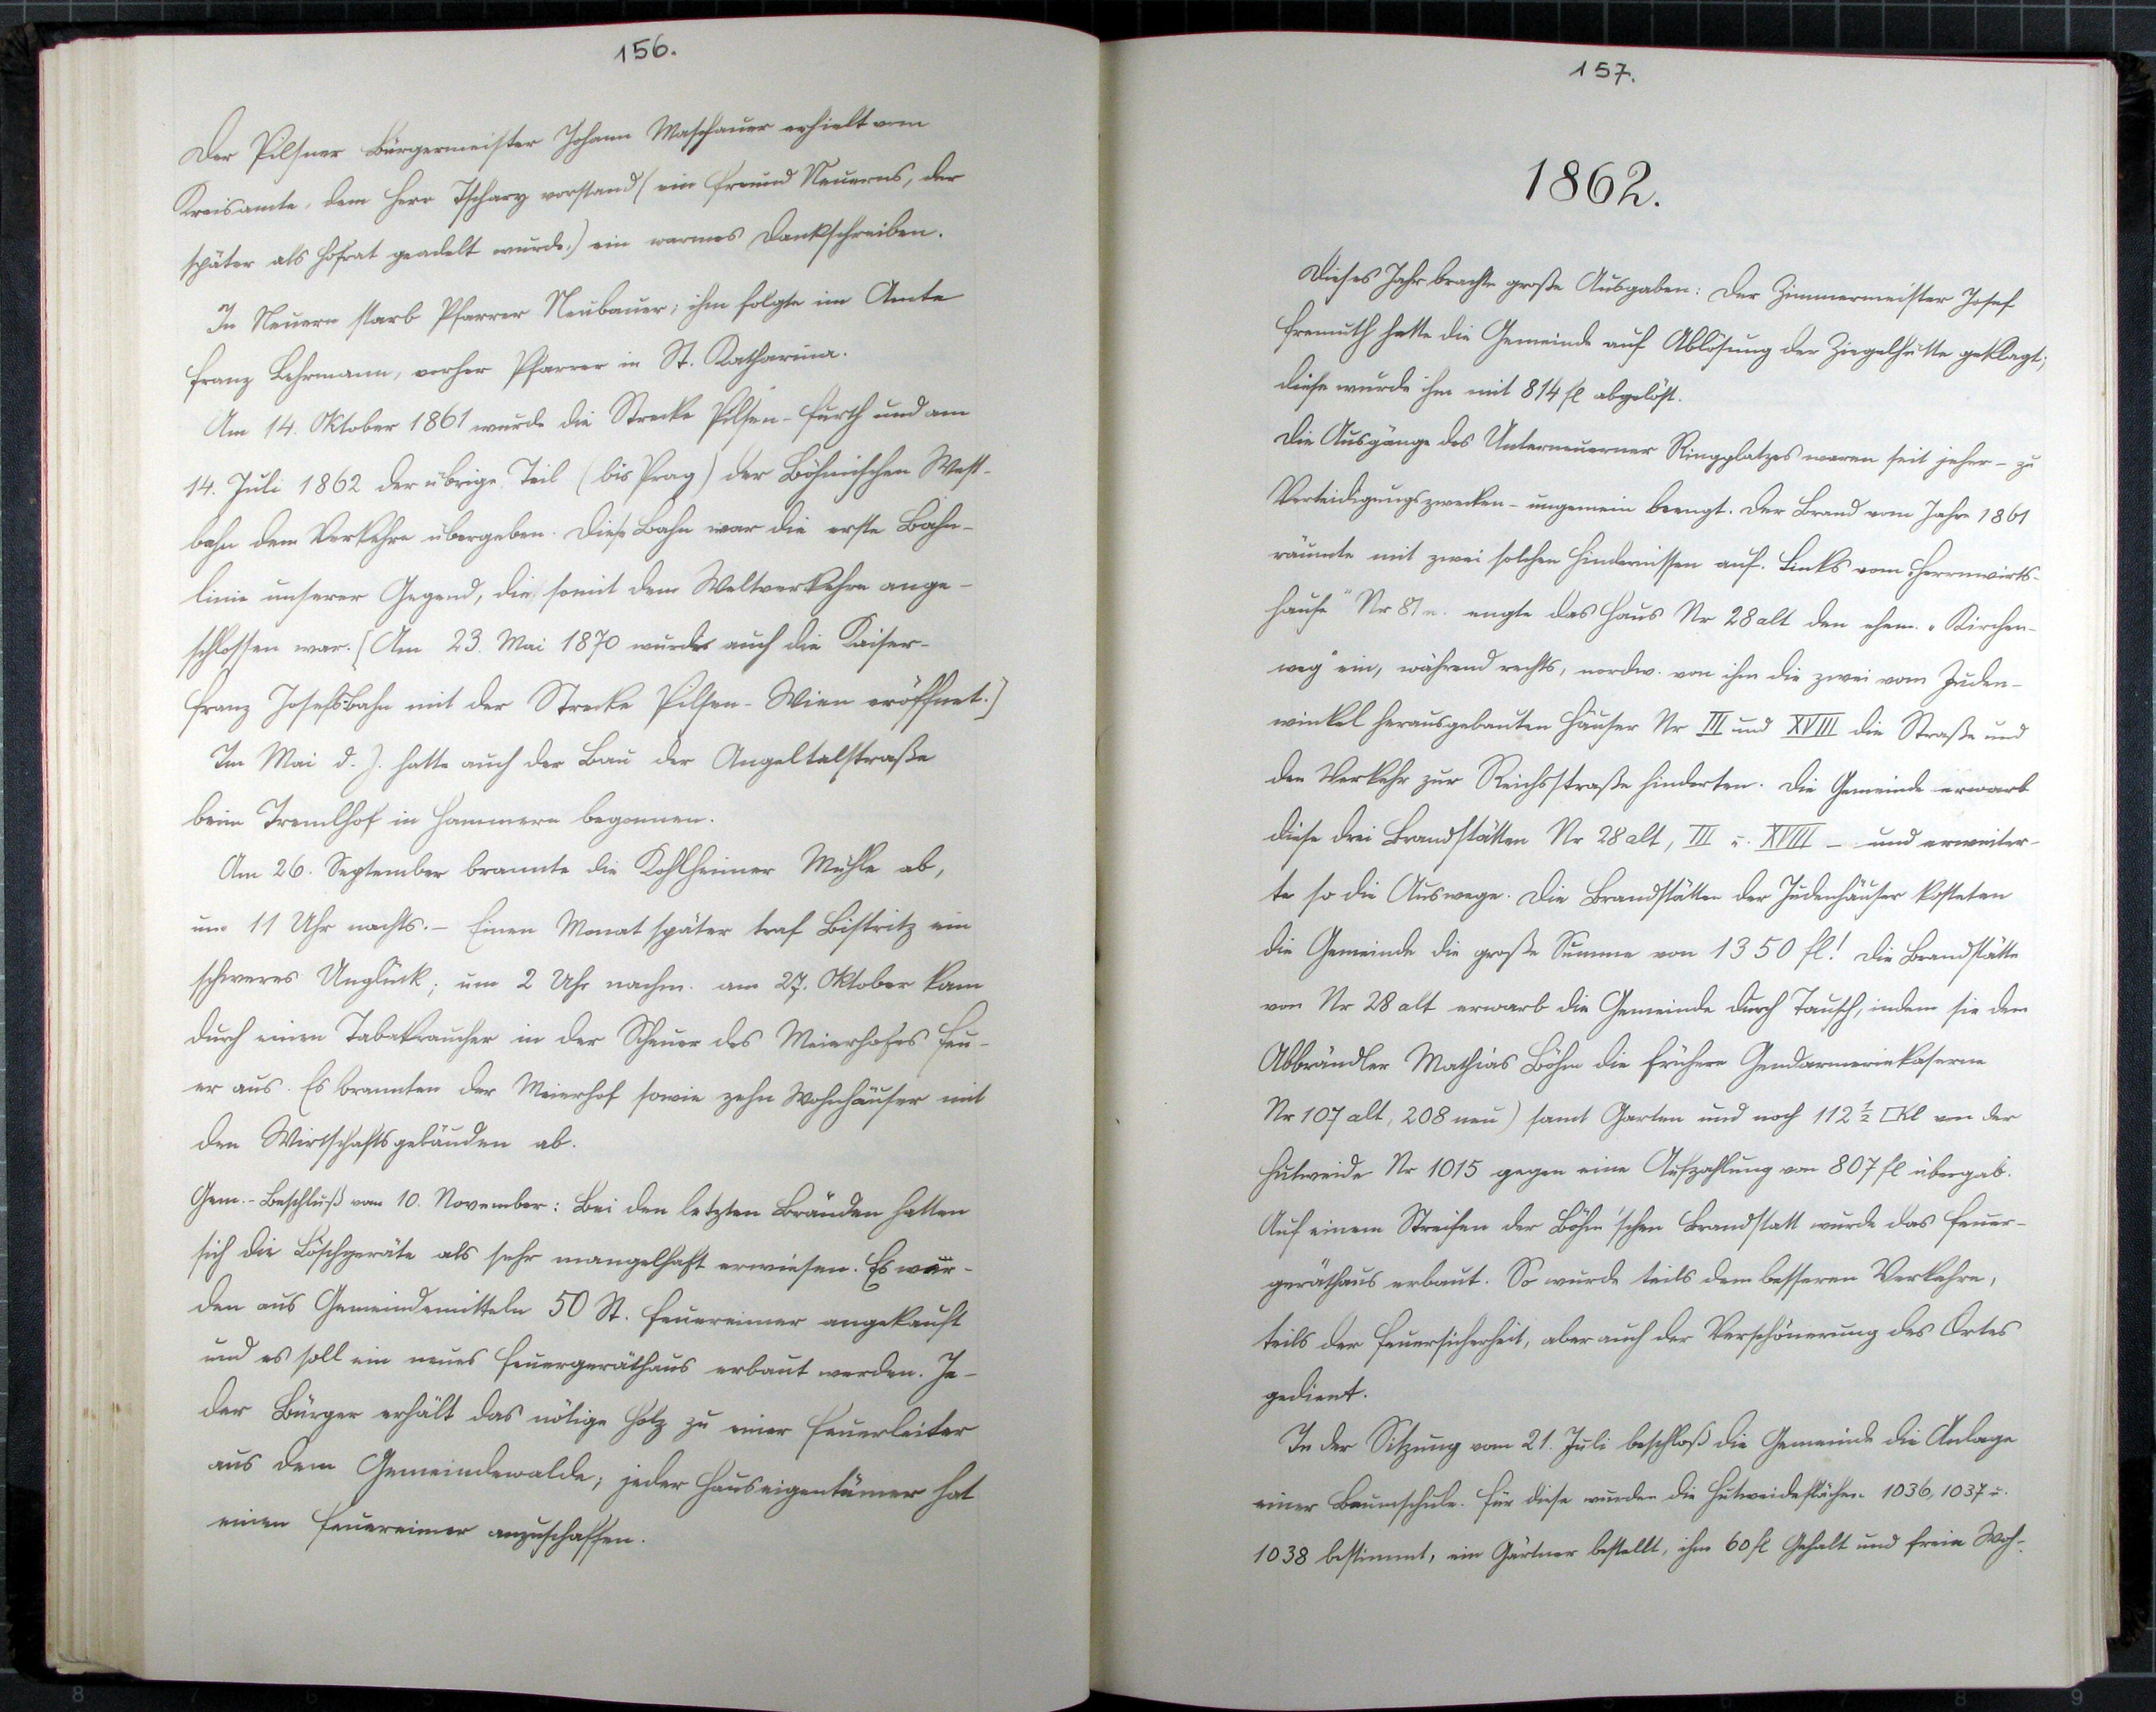 156.
Der Pilsner Bürgermeister Johann Maschauer erhielt vom
Kreisamte, dem Herr Tschary vorstand (ein Freund Neuerns, der
später als Hofrat geadelt wurde.) ein warmes Dankschreiben.
In Neuern starb Pfarrer Neubauer; ihm folgte im Amte
Franz Lehrmann, vorher Pfarrer in St. Katharina.
Am 14. Oktober 1861 wurde die Strecke Pilsen-Furth und am
14. Juli 1862 der übrige Teil (bis Prag) der Böhmischen West-
bahn dem Verkehre übergeben. Diese Bahn war die erste Bahn-
linie unserer Gegend, die somit dem Weltverkehre ange-
schlossen war. [Am 23. Mai 1870 wurde auch die Kaiser-
Franz Josefsbahn mit der Strecke Pilsen-Wien eröffnet.]
Im Mai d. J. hatte auch der Bau der Angeltalstraße
beim Tremlhof in Hammern begonnen.
Am 26. September brannte die Kohlheimer Mühle ab,
um 11 Uhr nachts. – Einen Monat später traf Bistritz ein
schweres Unglück; um 2 Uhr nachm. am 27. Oktober kam
durch einen Tabakraucher in der Scheuer des Meierhofes Feu-
er aus. Es brannten der Meierhof sowie zehn Wohnhäuser mit
den Wirtschaftsgebäuden ab.
Gem.-Beschluß vom 10. November: Bei den letzten Bränden hatten
sich die Löschgeräte als sehr mangelhaft erwiesen. Es wur-
den aus Gemeindemitteln 50 St. Feuereimer angekauft
und es soll ein neues Feuergeräthaus erbaut werden. Je-
der Bürger erhält das nötige Holz zu einer Feuerleiter
aus dem Gemeindewalde; jeder Hauseigentümer hat
einen Feuereimer anzuschaffen.
157.
1862.
Dieses Jahr brachte große Ausgaben: Der Zimmermeister Josef
Fremuth hatte die Gemeinde auf Ablösung der Ziegelhütte geklagt;
diese wurde ihm mit 814 fl abgelöst.
Die Ausgänge des Unterneuerner Ringplatzes waren seit jeher – zu
Verteidigungszwecken – ungemein beengt. Der Brand vom Jahre 1861
räumte mit zwei solchen Hindernissen auf. Links vom „Herrnwirts-
hause" Nr 87 n. engte das Haus Nr 28 alt den ehem. „Kirchen-
weg" ein, während rechts, nordw. von ihm die zwei vom Juden-
winkel herausgebauten Häuser Nr III und XVIII die Straße und
den Verkehr zur Reichsstraße hinderten. Die Gemeinde erwarb
diese drei Brandstätten Nr 28 alt, III u. XVIII – und erweiter-
te so die Auswege. Die Brandstätten der Judenhäuser kosteten
die Gemeinde die große Summe von 1350 fl! Die Brandstätte
von Nr 28 alt erwarb die Gemeinde durch Tausch, indem sie dem
Abbrändler Mathias Böhm die frühere Gendarmeriekaserne
Nr 107 alt, 208 neu) samt Garten und noch 112 ½ □Kl von der
Hutweide Nr 1015 gegen eine Aufzahlung von 807 fl übergab.
Auf einem Streifen der Böhm'schen Brandstatt wurde das Feuer-
geräthaus erbaut. So wurde teils dem besseren Verkehre,
teils der Feuersicherheit, aber auch der Verschönerung des Ortes
gedient.
In der Sitzung vom 21. Juli beschloß die Gemeinde die Anlage
einer Baumschule. Für diese wurden die Hutweideflächen 1036, 1037 u.
1038 bestimmt, ein Gärtner bestellt, ihm 60 fl Gehalt und freie Woh-